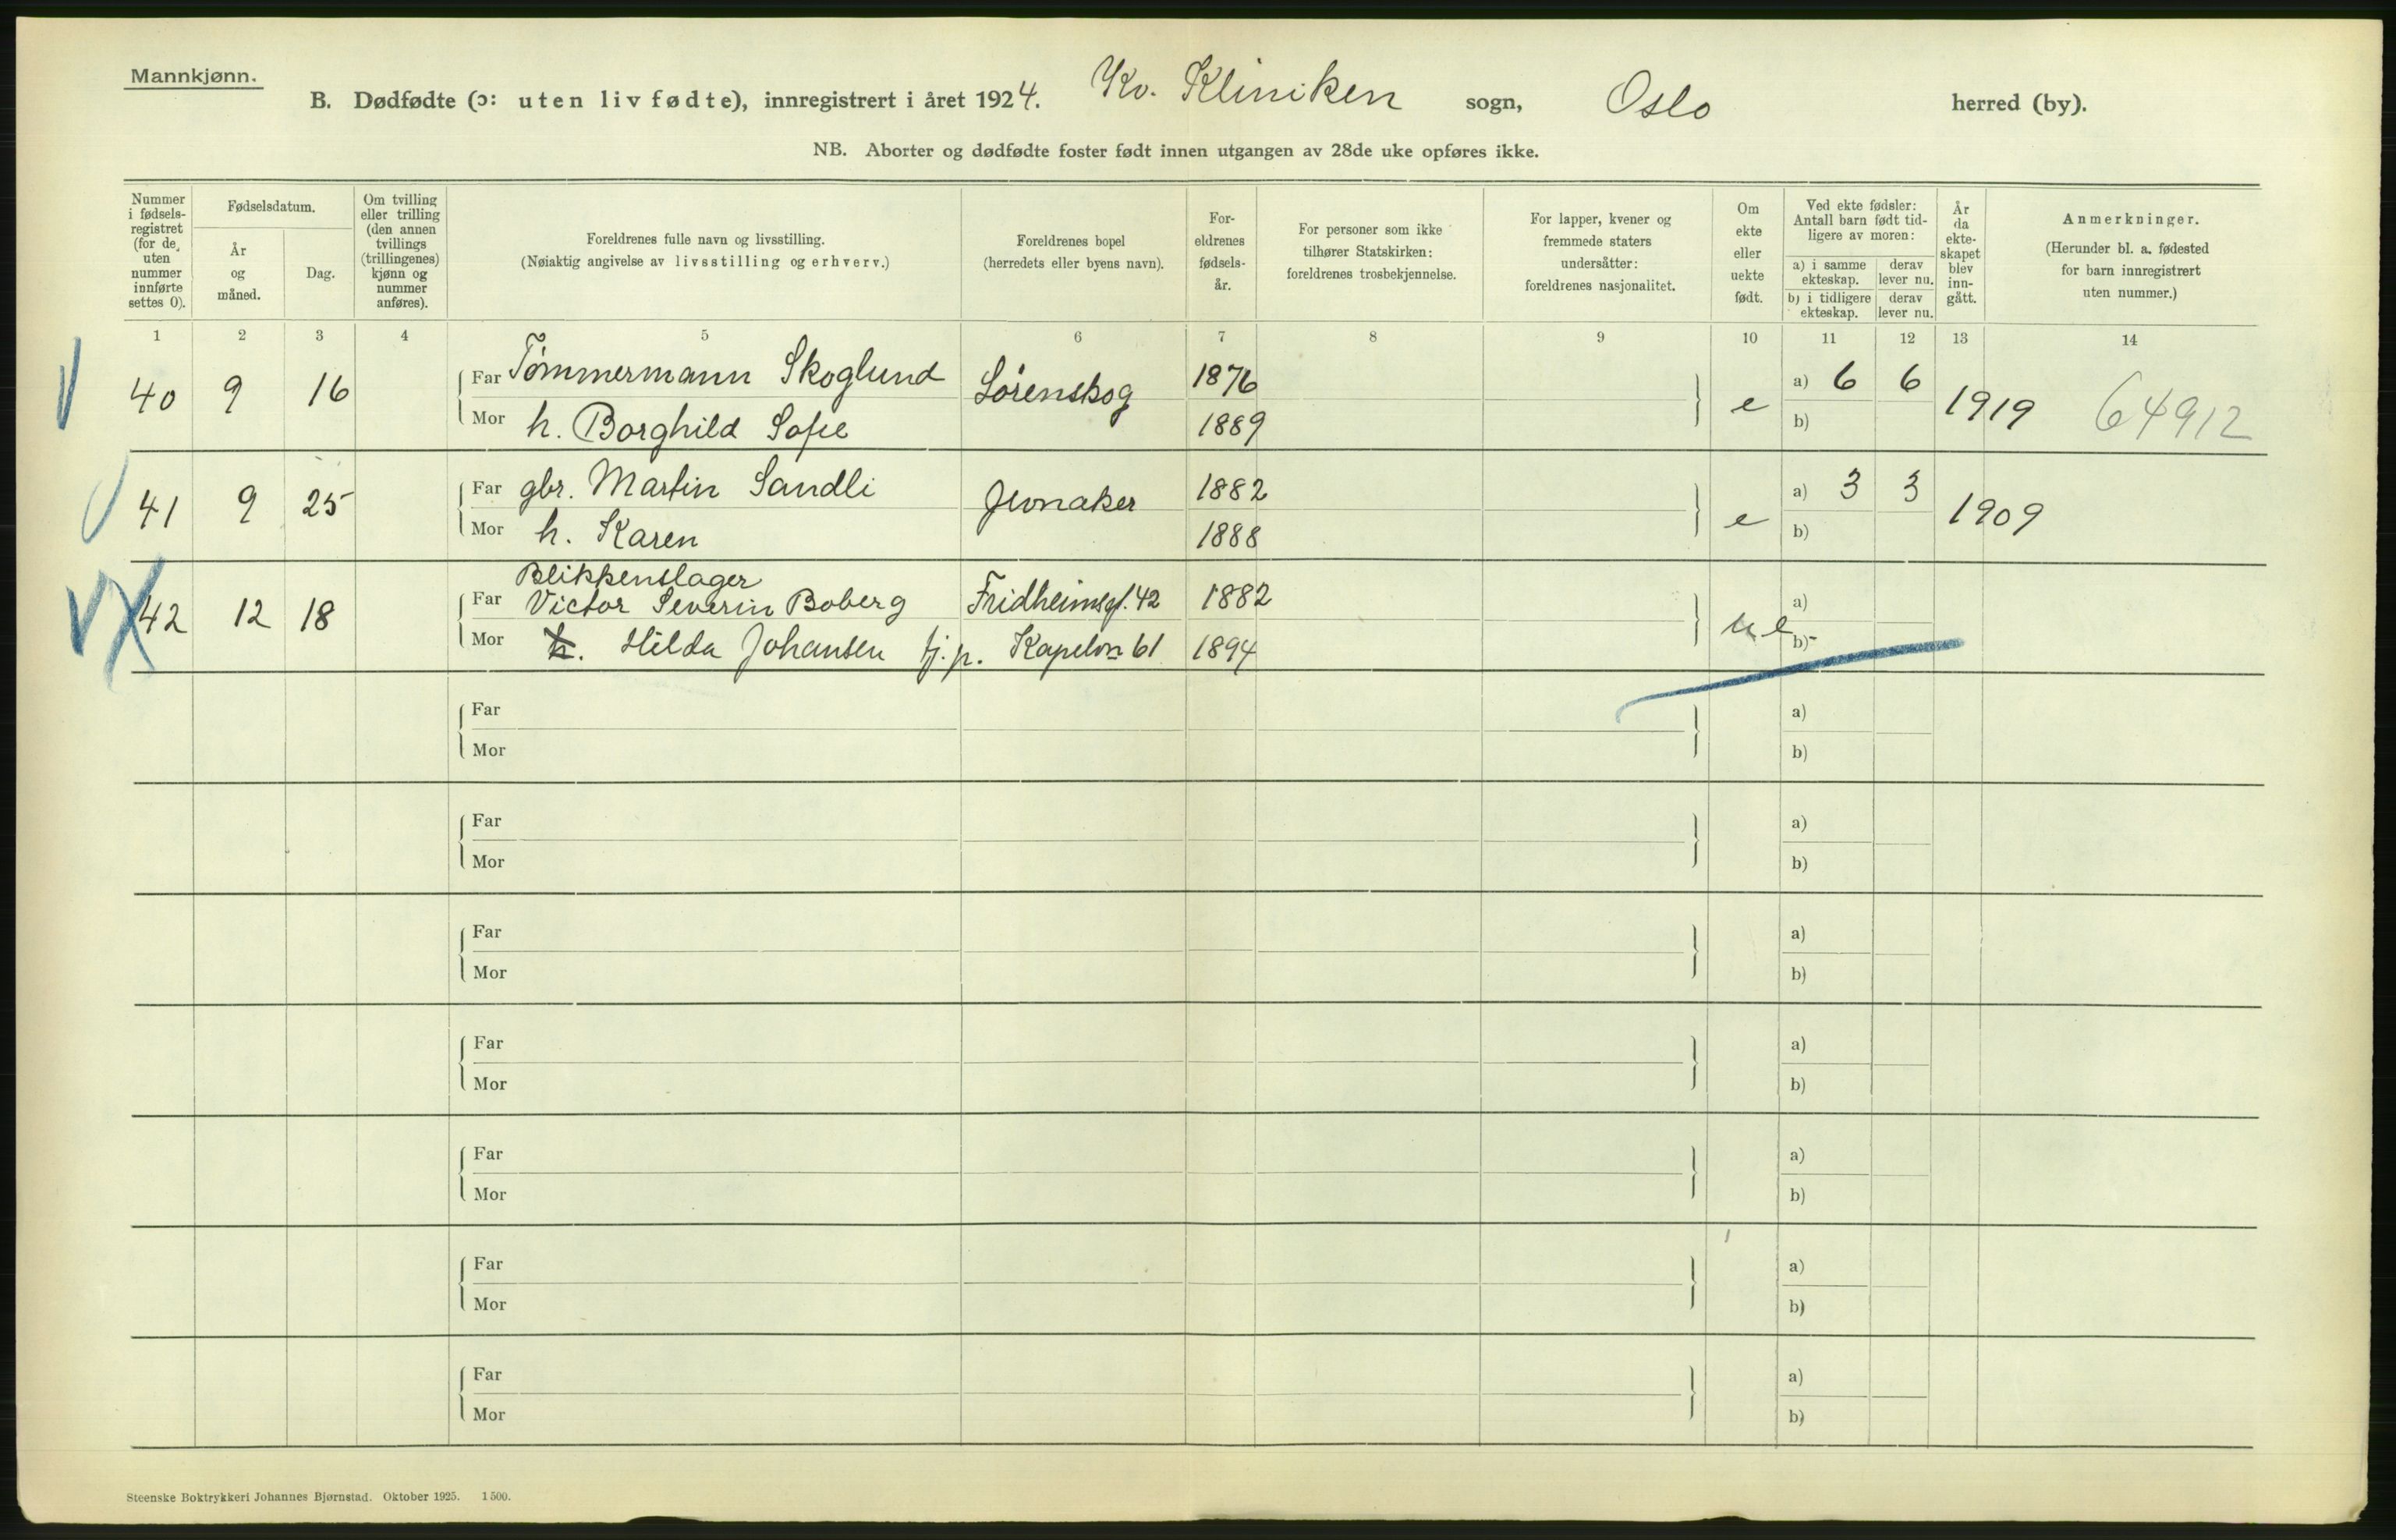 Mannkjønn.
B. Dødfødte (ɔ: uten liv fødte), innregistrert i året 1924. Kv. Kliniken sogn, Oslo herred (by).
NB. Aborter og dødfødte foster født innen utgangen av 28de uke opføres ikke.
Nummer i fødsels-registret (for de uten nummer innførte settes 0).
Fødselsdatum.
År og måned.
Dag.
Om tvilling eller trilling (den annen tvillings (trillingenes) kjønn og nummer anføres).
Foreldrenes fulle navn og livsstilling.
(Nøiaktig angivelse av livsstilling og erhverv.)
Foreldrenes bopel
(herredets eller byens navn).
For-eldrenes fødsels-år.
For personer som ikke tilhører Statskirken: foreldrenes trosbekjennelse.
For lapper, kvener og fremmede staters undersåtter: foreldrenes nasjonalitet.
Om ekte eller uekte født.
Ved ekte fødsler: Antall barn født tid-ligere av moren:
a) i samme ekteskap. derav lever nu.
b) i tidligere ekteskap. derav lever nu.
År da ekte-skapet blev inn-gått.
Anmerkninger.
(Herunder bl. a. fødested for barn innregistrert uten nummer.)
1 2 3 4 5 6 7 8 9 10 11 12 13 14
40 9 16 Far Tømmermann Skoglund Lørenskog 1876 e a) 6 6 1919 64912
Mor h. Borghild Sofie 1889 b)
41 9 25 Far gbr. Martin Sandli Jevnaker 1882 e a) 3 3 1909
Mor h. Karen 1888 b)
Blikkenslager
42 12 18 Far Victor Severin Boberg Fridheimsgt. 42 1882 ue a)
Mor h. Hilda Johansen tj.p. Kapelvn 61 1894 b)
Far a)
Mor b)
Far a)
Mor b)
Far a)
Mor b)
Far a)
Mor b)
Far a)
Mor b)
Far a)
Mor b)
Far a)
Mor b)
Steenske Boktrykkeri Johannes Bjørnstad. Oktober 1925. 1500.